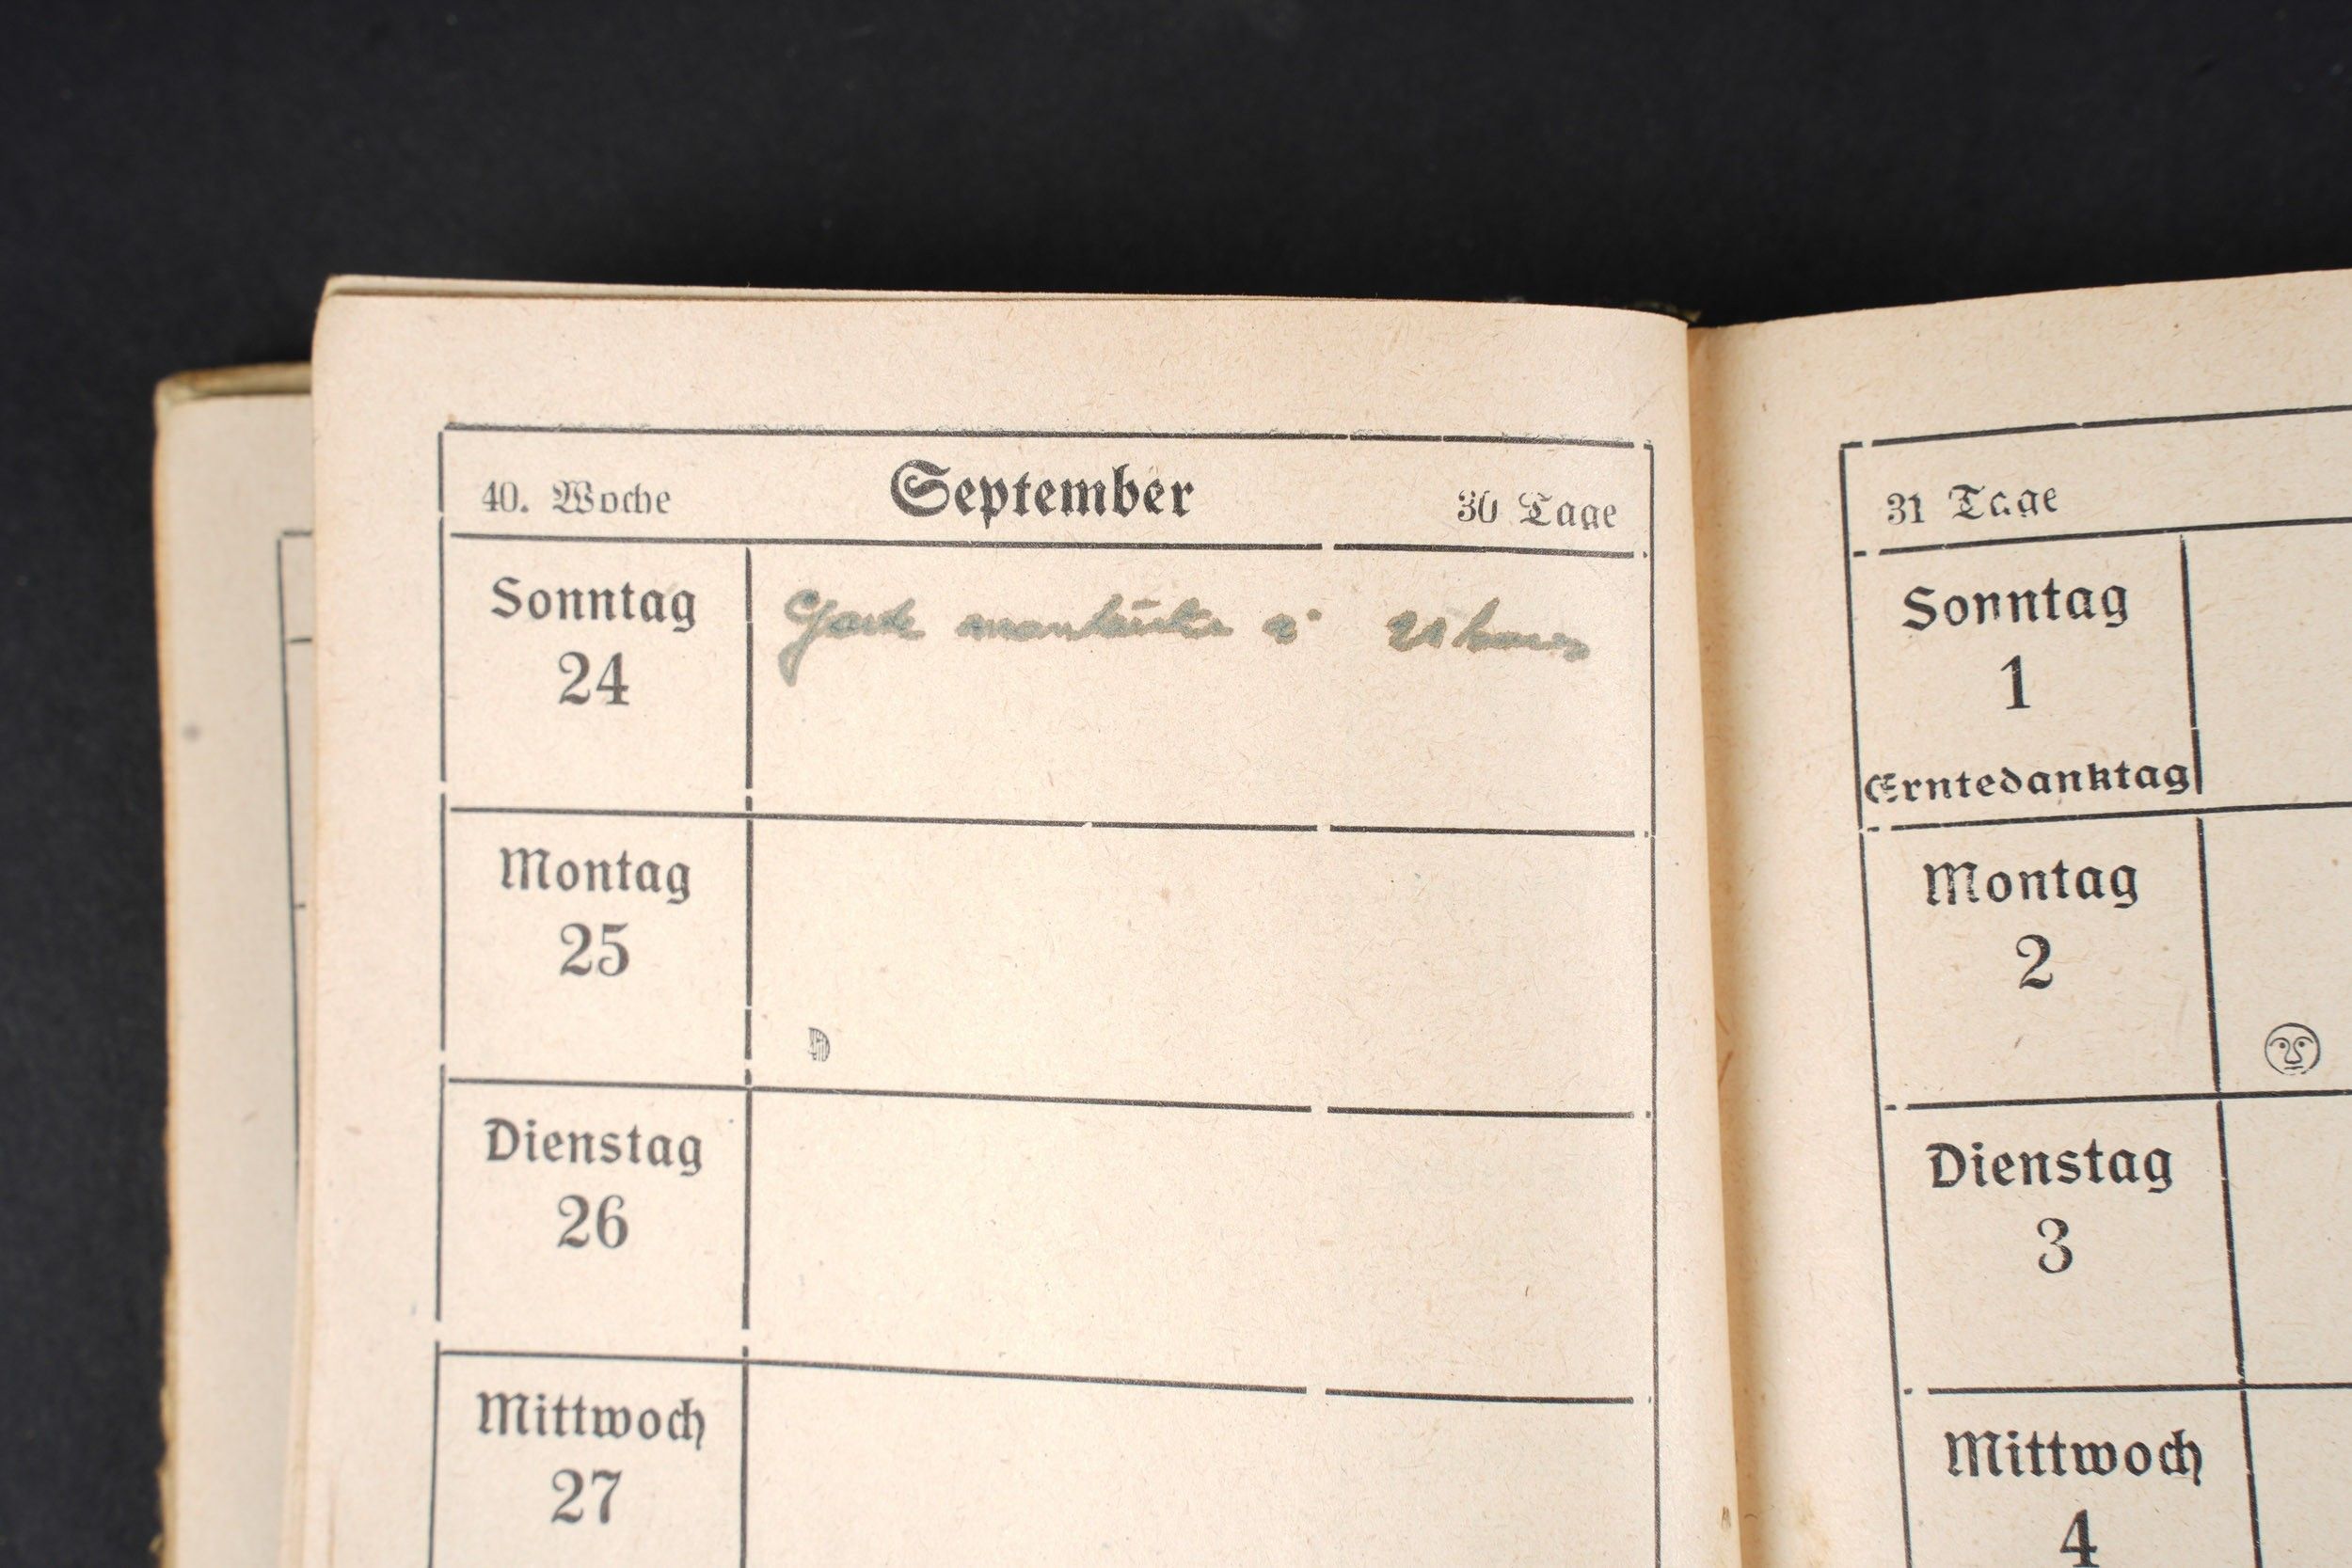 40. Woche September 30 Tage
Sonntag
24
Garde à 21 heures
Montag
25
Dienstag
26
Mittwoch
27
31 Tage
Sonntag
1
Erntedanktag
Montag
2
Dienstag
3
Mittwoch
4